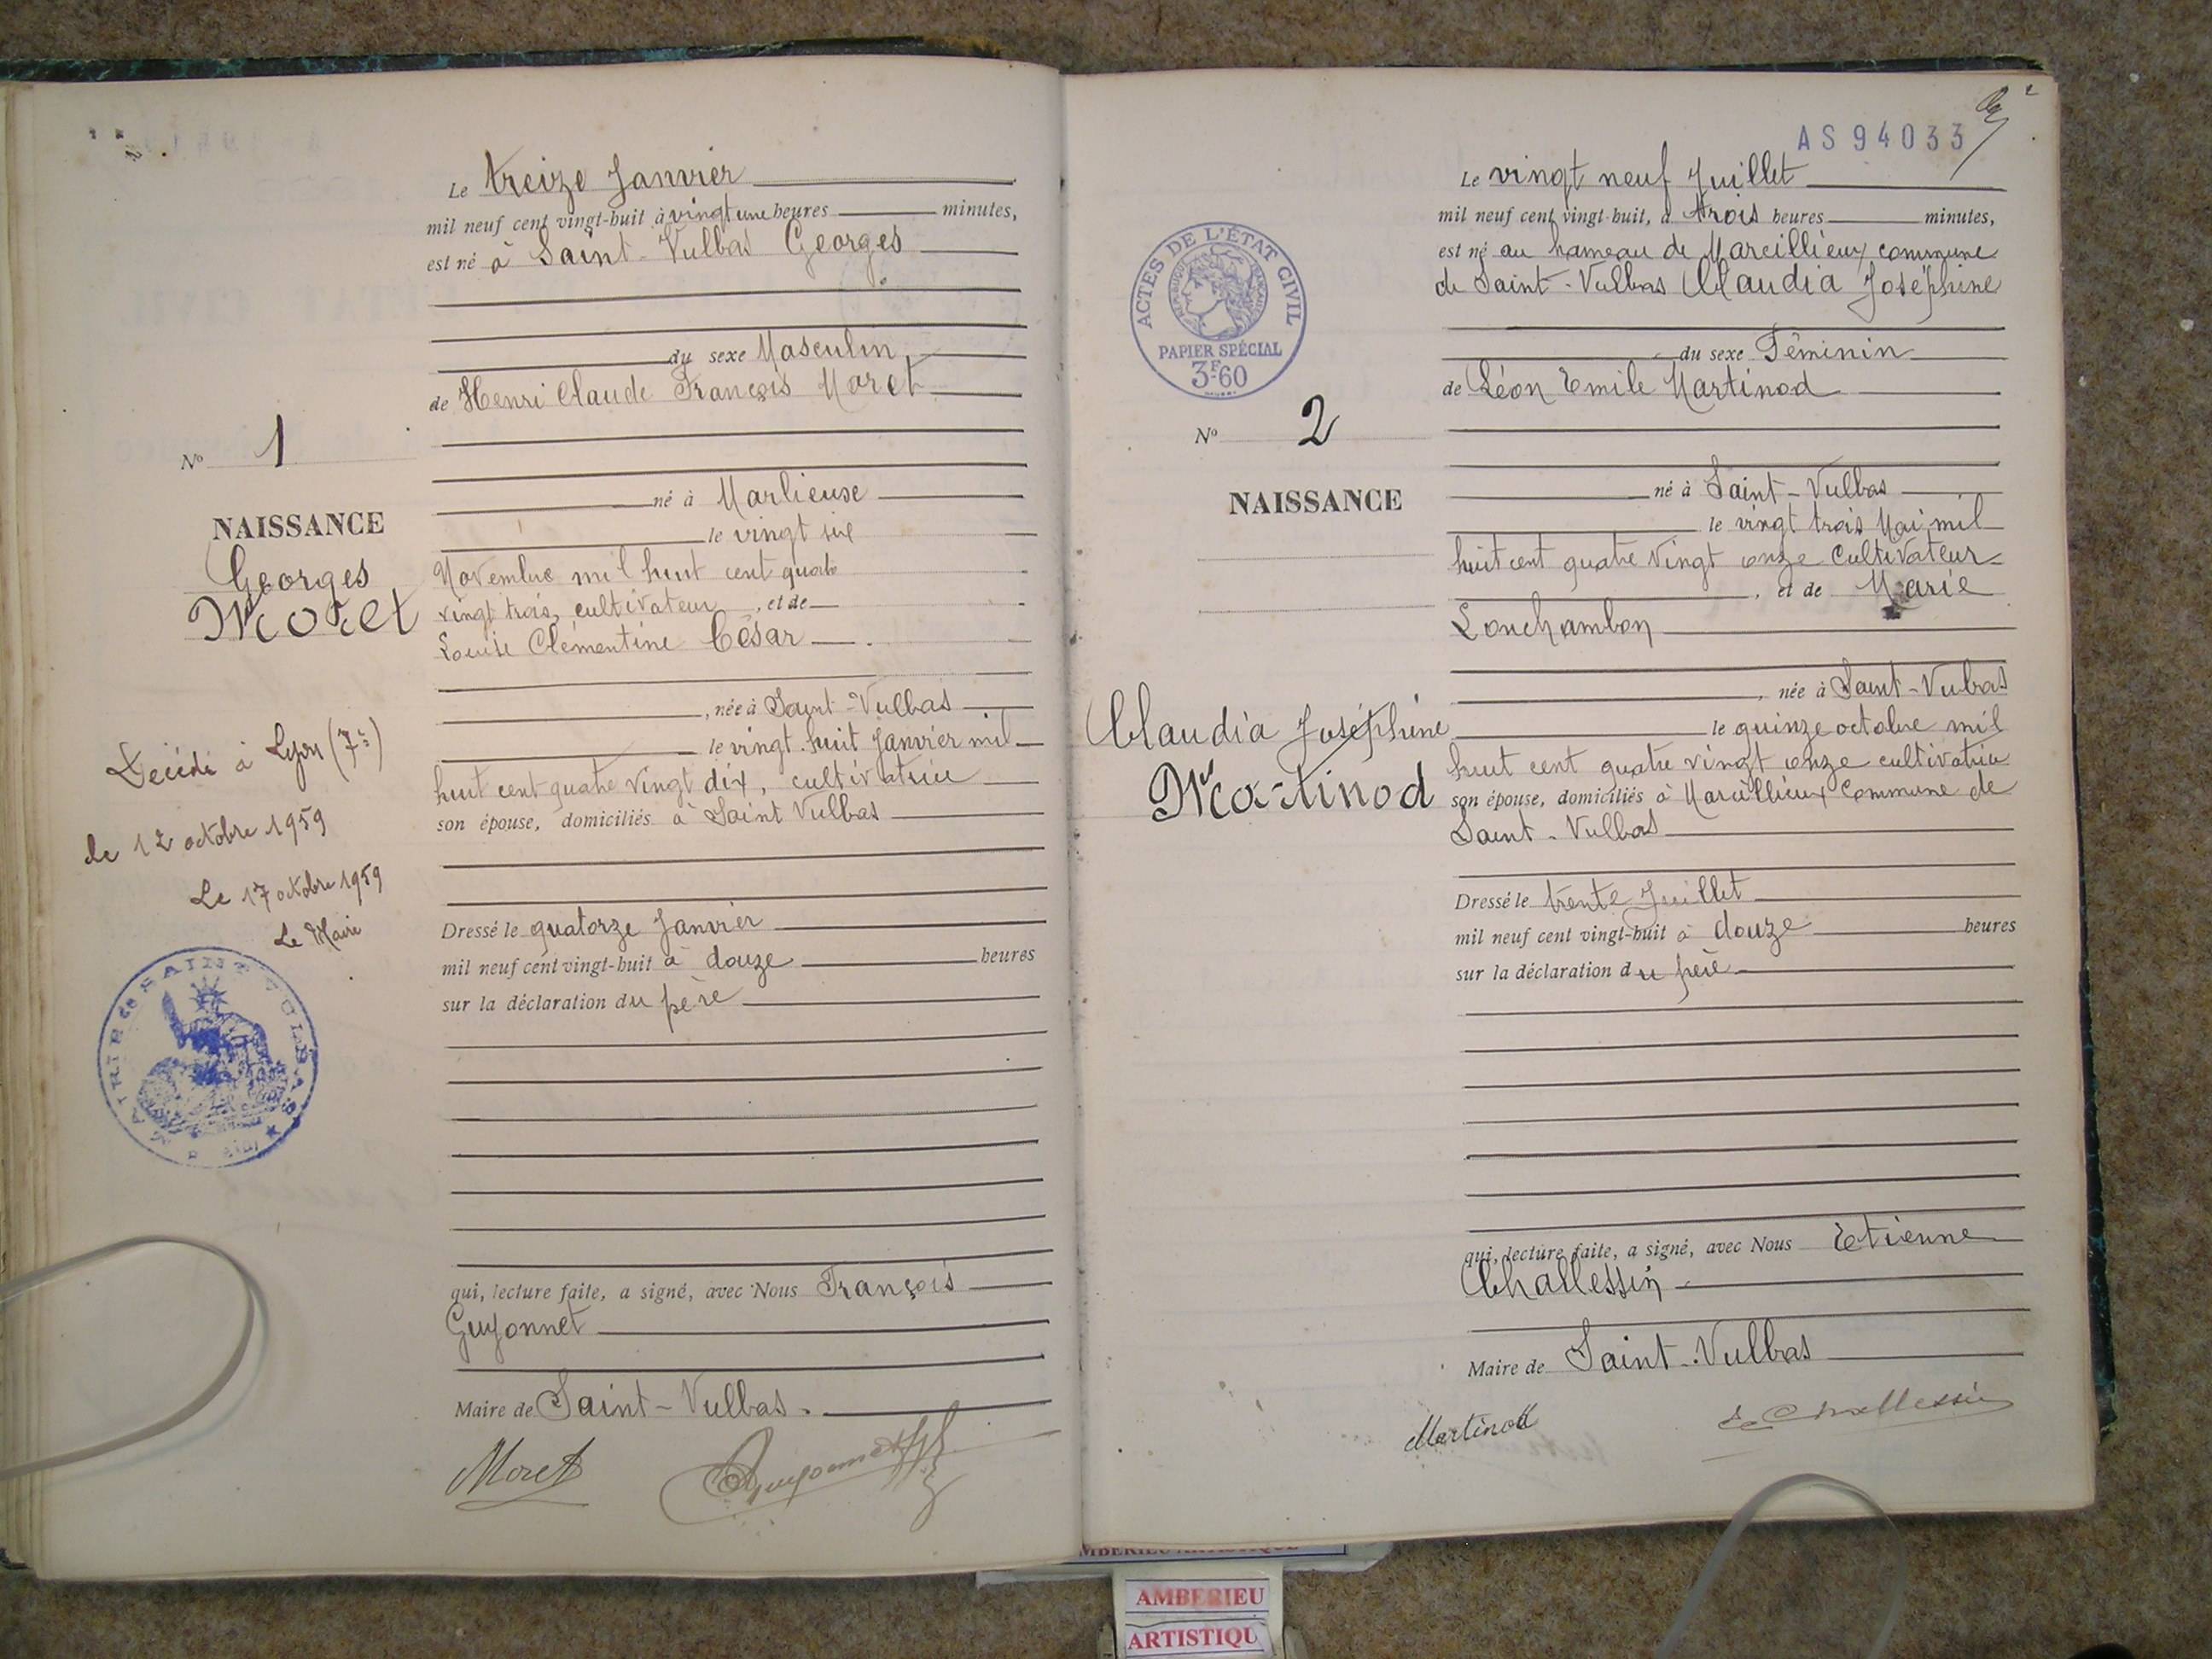 Le treize Janvier
mil neuf cent vingt-huit à vingt une heures minutes,
est né à Saint-Vulbas Georges
du sexe Masculin
de Henri Claude François Moret
né à Marlieuse
le vingt six
Novembre mil huit cent quatre
vingt trois, cultivateur, et de
Louise Clémentine César
, née à Saint-Vulbas
le vingt-huit Janvier mil
huit cent quatre vingt dix, cultivatrice
son épouse, domiciliés à Saint Vulbas
Dressé le quatorze Janvier
mil neuf cent vingt-huit à douze heures
sur la déclaration du père
qui, lecture faite, a signé, avec Nous François
Guyonnet
Maire de Saint-Vulbas.
Moret Guyonnet
No 1
NAISSANCE
Georges
Moret
Décédé à Lyon (7e)
le 12 octobre 1959
Le 17 octobre 1959
Le Maire
MAIRIE de SAINT VULBAS
AS 94033
ACTES DE L'ÉTAT CIVIL
PAPIER SPÉCIAL
3F60
No 2
NAISSANCE
Claudia Joséphine
Martinod
Le vingt neuf Juillet
mil neuf cent vingt-huit, à trois heures minutes,
est né au hameau de Marcillieux commune
de Saint-Vulbas Claudia Joséphine
du sexe Féminin
de Léon Emile Martinod
né à Saint-Vulbas
le vingt trois Mai mil
huit cent quatre vingt onze cultivateur
, et de Marie
Lonchambon
, née à Saint-Vulbas
le quinze octobre mil
huit cent quatre vingt onze cultivatrice
son épouse, domiciliés à Marcillieux Commune de
Saint-Vulbas
Dressé le trente Juillet
mil neuf cent vingt-huit à douze heures
sur la déclaration du père
qui, lecture faite, a signé, avec Nous Etienne
Challessin
Maire de Saint-Vulbas
Martinod Challessin
AMBERIEU
ARTISTIQU